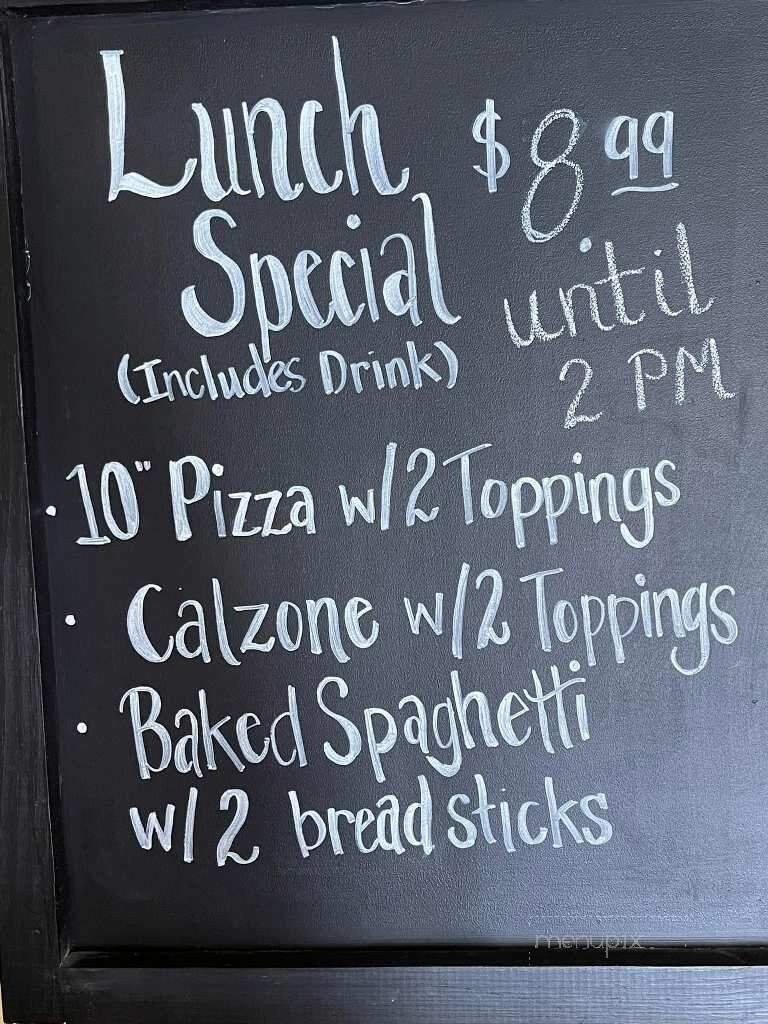 Lunch $8.99
Special until
(Includes Drink) 2 PM
· 10" Pizza w/2 Toppings
· Calzone w/2 Toppings
· Baked Spaghetti
w/2 bread sticks
menupix